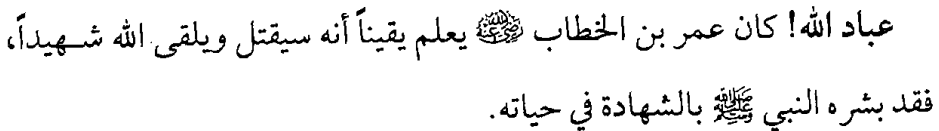 عباد الله! كان عمر بن الخطاب رضي الله عنه يعلم يقيناً أنه سيقتل ويلقى الله شهيداً،
فقد بشره النبي ﷺ بالشهادة في حياته.